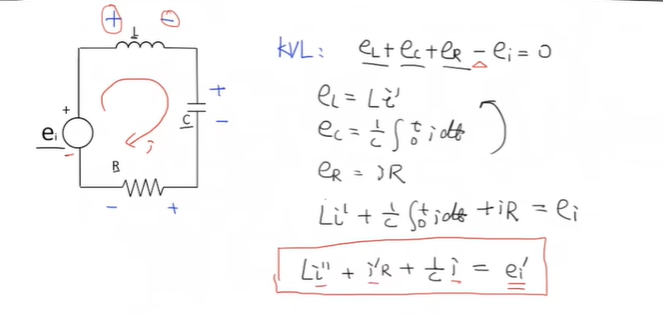 + -
L
+
-
C
+
-
ei
i
R
- +
KVL: eL + eC + eR - ei = 0
eL = Li'
eC = 1/C ∫₀ᵗ i dt
eR = iR
Li' + 1/C ∫₀ᵗ i dt + iR = ei
Li'' + i'R + 1/C i = ei'